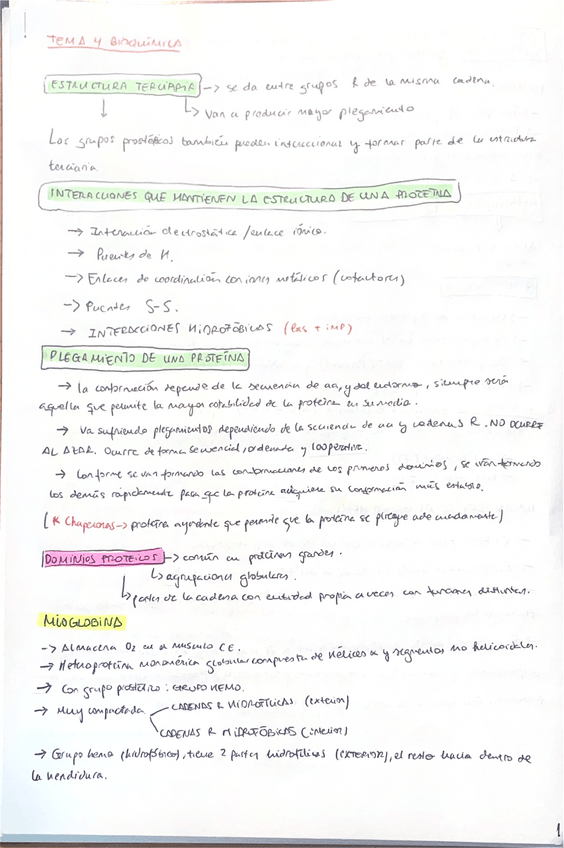 TEMA 4 BIOQUÍMICA
ESTRUCTURA TERCIARIA -> se da entre grupos R de la misma cadena.
↳ Van a producir mayor plegamiento
Los grupos prostéticos también pueden interaccionar y formar parte de la estructura
terciaria.
INTERACCIONES QUE MANTIENEN LA ESTRUCTURA DE UNA PROTEÍNA
-> Interacción electrostática / enlace iónico.
-> Puentes de H.
-> Enlaces de coordinación con iones metálicos (cofactores)
-> Puentes S-S.
-> INTERACCIONES HIDROFÓBICAS (las + imp)
PLEGAMIENTO DE UNA PROTEÍNA
-> la conformación depende de la secuencia de aa, y del entorno, siempre será
aquella que permite la mayor estabilidad de la proteína en su medio.
-> Va sufriendo plegamientos dependiendo de la secuencia de aa y cadenas R. NO OCURRE
AL AZAR. Ocurre de forma secuencial, ordenada y cooperativa.
-> Conforme se van formando las conformaciones de los primeros dominios, se van formando
los demás rápidamente para que la proteína adquiera su conformación más estable.
[* Chaperonas -> proteína ayudante que permite que la proteína se pliegue adecuadamente]
DOMINIOS PROTEICOS -> común en proteínas grandes.
↳ agrupaciones globulares.
↳ partes de la cadena con entidad propia a veces con funciones distintas.
MIOGLOBINA
-> Almacena O2 en el músculo CE.
-> Heteroproteína monomérica globular compuesta de hélices α y segmentos no helicoidales.
-> Con grupo prostético: GRUPO HEMO.
-> Muy compactada CADENAS R HIDROFÍLICAS (exterior)
CADENAS R HIDROFÓBICAS (interior)
-> Grupo hemo (hidrofóbico), tiene 2 partes hidrofílicas (EXTERIOR), el resto hacia dentro de
la hendidura.
1